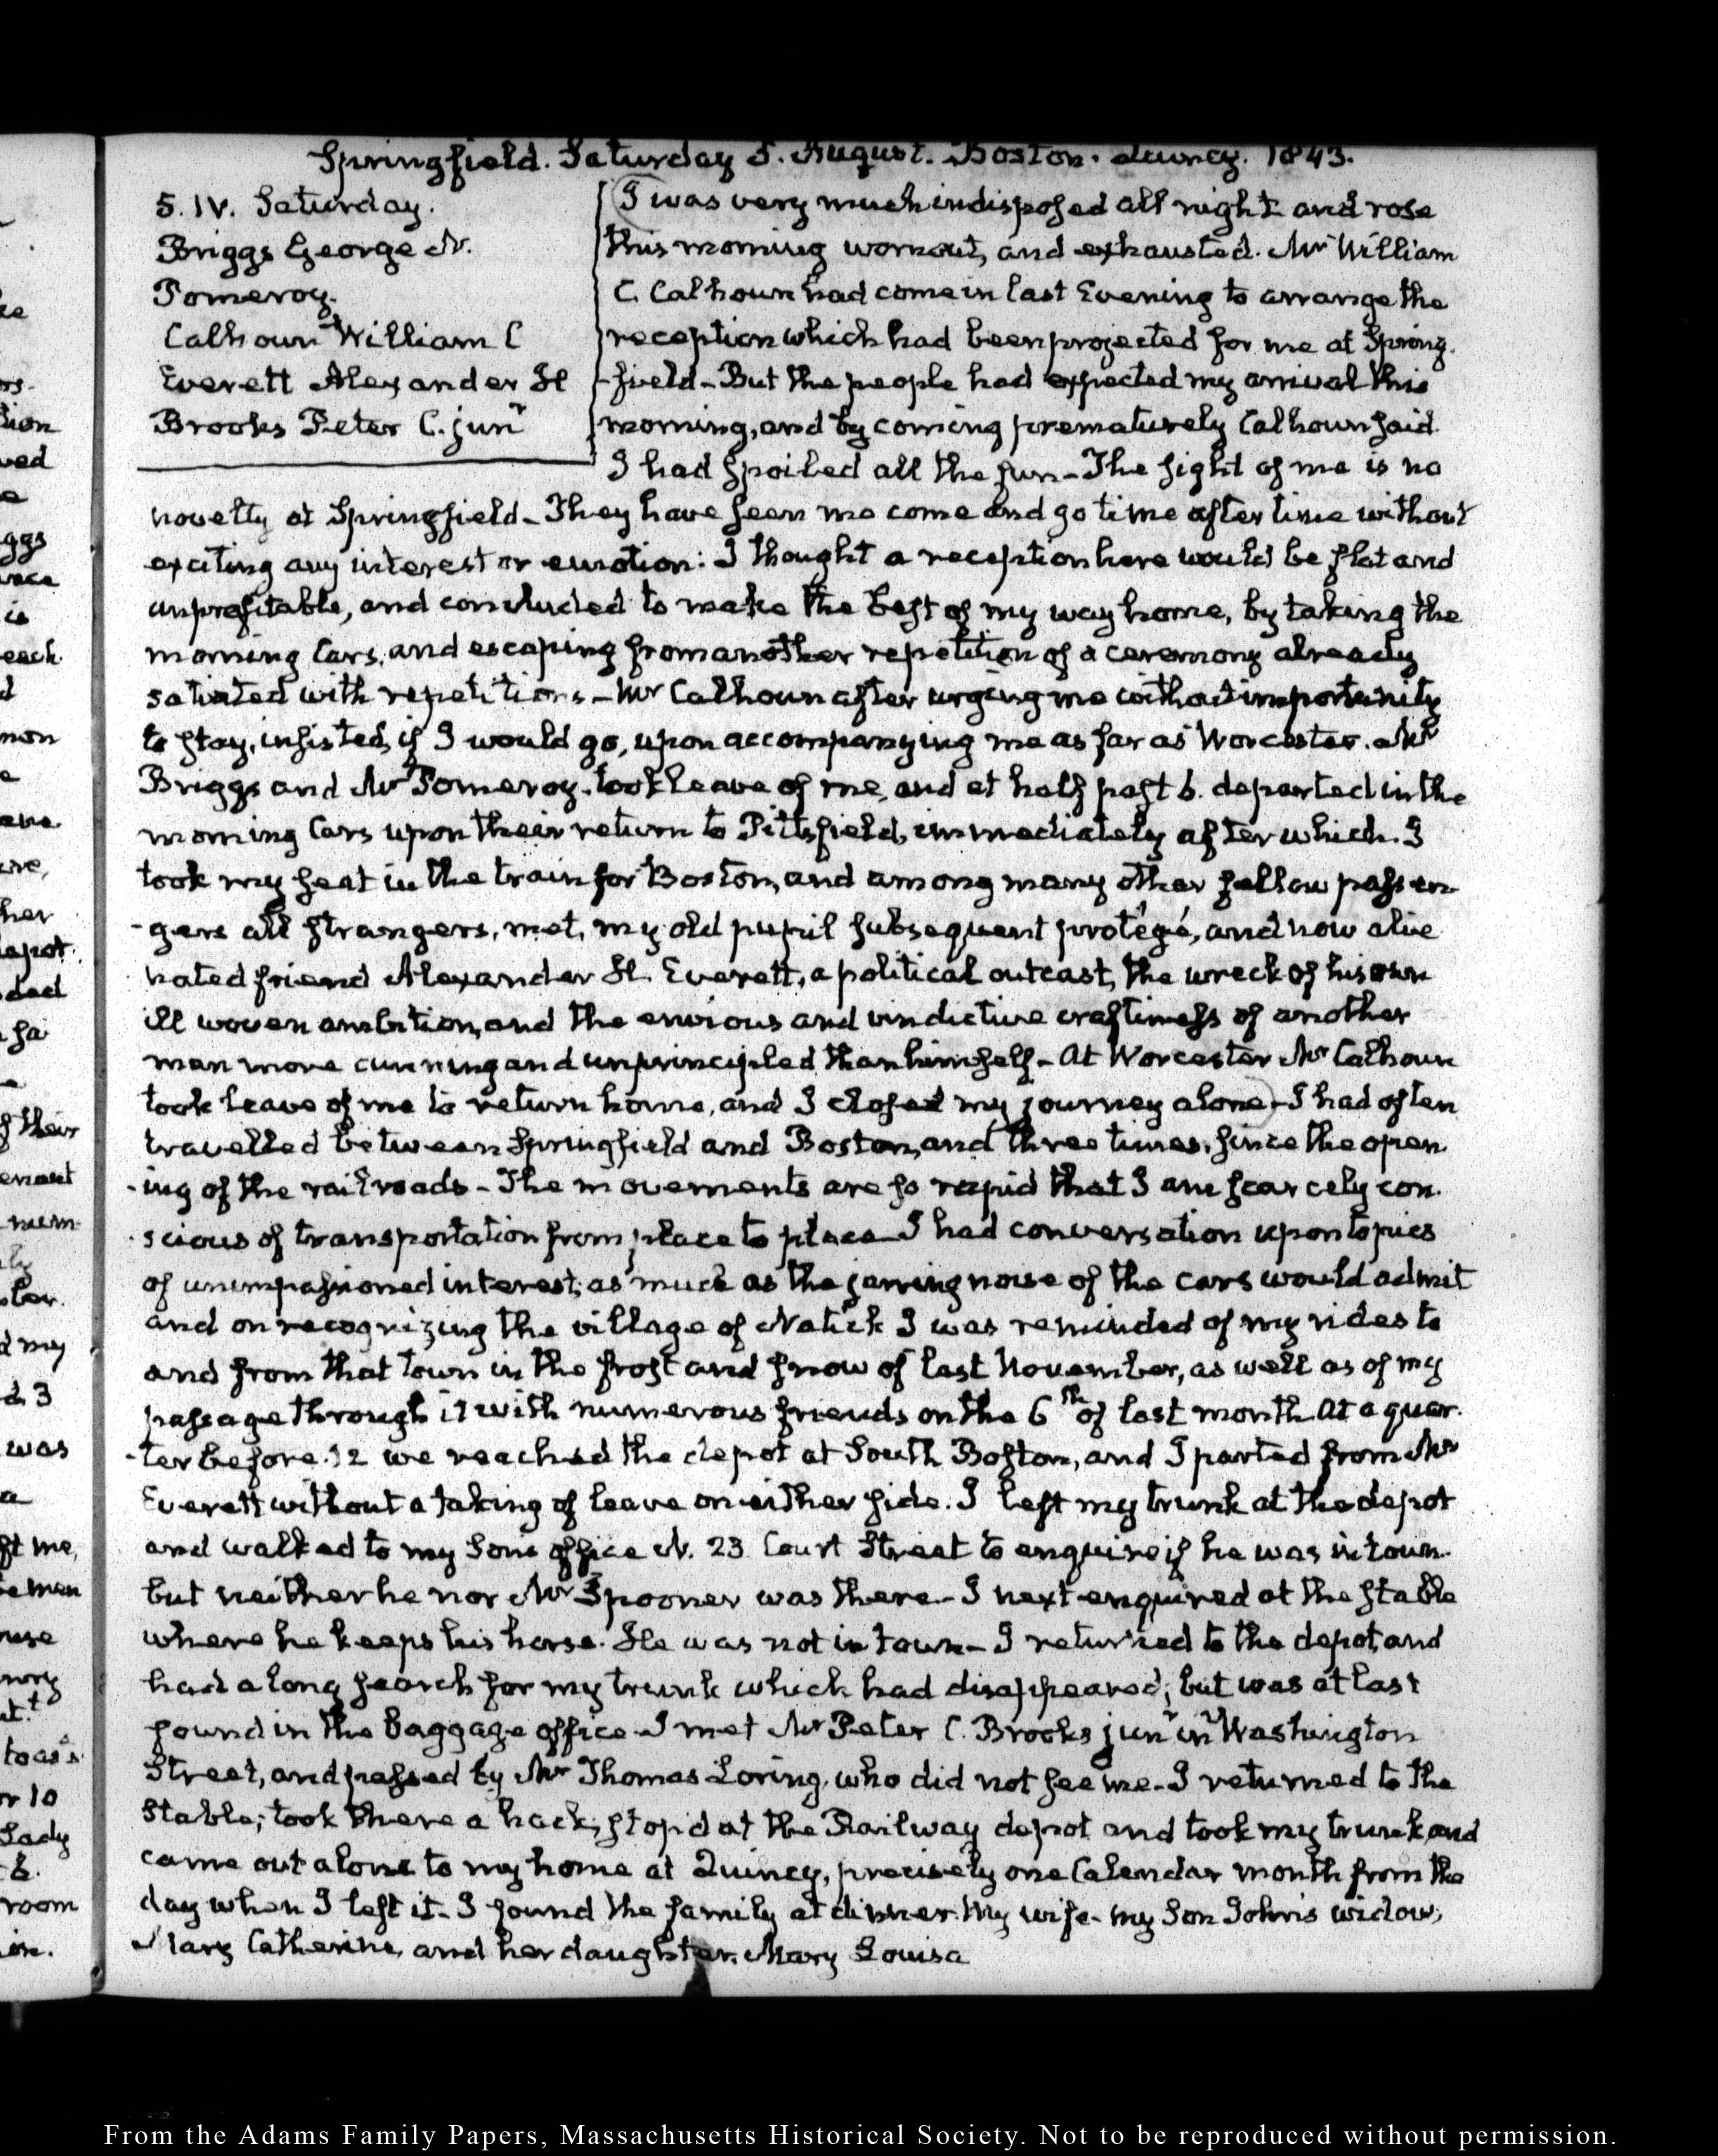 Springfield. Saturday 5. August. Boston. Quincy. 1843.
5. IV. Saturday.
Briggs George N.
Pomeroy.
Calhoun William C
Everett Alexander H
Brooks Peter C. junr
I was very much indisposed all night and rose
this morning wornout, and exhausted. Mr William
C. Calhoun had come in last Evening to arrange the
reception which had been projected for me at Spring-
-field – But the people had expected my arrival this
morning, and by coming prematurely Calhoun said
I had spoiled all the fun – The sight of me is no
novelty at Springfield – They have seen me come and go time after time without
exciting any interest or emotion: I thought a reception here would be flat and
unprofitable, and concluded to make the best of my way home, by taking the
morning Cars, and escaping from another repetition of a ceremony already
satiated with repetitions – Mr Calhoun after urging me without importunity
to stay, insisted, if I would go, upon accompanying me as far as Worcester. Mr
Briggs and Mr Pomeroy. took leave of me, and at half past 6. departed in the
morning Cars upon their return to Pittsfield, immediately after which. I
took my seat in the train for Boston, and among many other fellow passen-
-gers all strangers, met, my old pupil subsequent protégé, and now alie
nated friend Alexander H. Everett, a political outcast, the wreck of his own
ill woven ambition, and the envious and vindictive craftiness of another
man more cunning and unprincipled than himself – At Worcester Mr Calhoun
took leave of me to return home, and I closed my journey alone – I had often
travelled between Springfield and Boston, and three times, since the open-
-ing of the railroads – The movements are so rapid that I am scarcely con-
-scious of transportation from place to place – I had conversation upon topics
of unimpassioned interest, as much as the jarring noise of the cars would admit
and on recognizing the village of Natick I was reminded of my rides to
and from that town in the frost and snow of last November, as well as of my
passage through it with numerous friends on the 6th of last month. At a quar-
-ter before. 12 we reached the depot at South Boston, and I parted from Mr
Everett without a taking of leave on either side. I left my trunk at the depot
and walked to my Sons office N. 23 Court Street to enquire if he was in town.
but neither he nor Mr Spooner was there – I next enquired at the stable
where he keeps his horse. He was not in town – I returned to the depot and
had a long search for my trunk which had disappeared; but was at last
found in the baggage office – I met Mr Peter C. Brooks junr in Washington
Street, and passed by Mr Thomas Loring, who did not see me – I returned to the
Stable; took there a hack, stop'd at the Railway depot and took my trunk and
came out alone to my home at Quincy, precisely one Calendar month from the
day when I left it – I found the family at dinner. My wife – my Son John's widow,
Mary Catherine, and her daughter. Mary Louisa
From the Adams Family Papers, Massachusetts Historical Society. Not to be reproduced without permission.